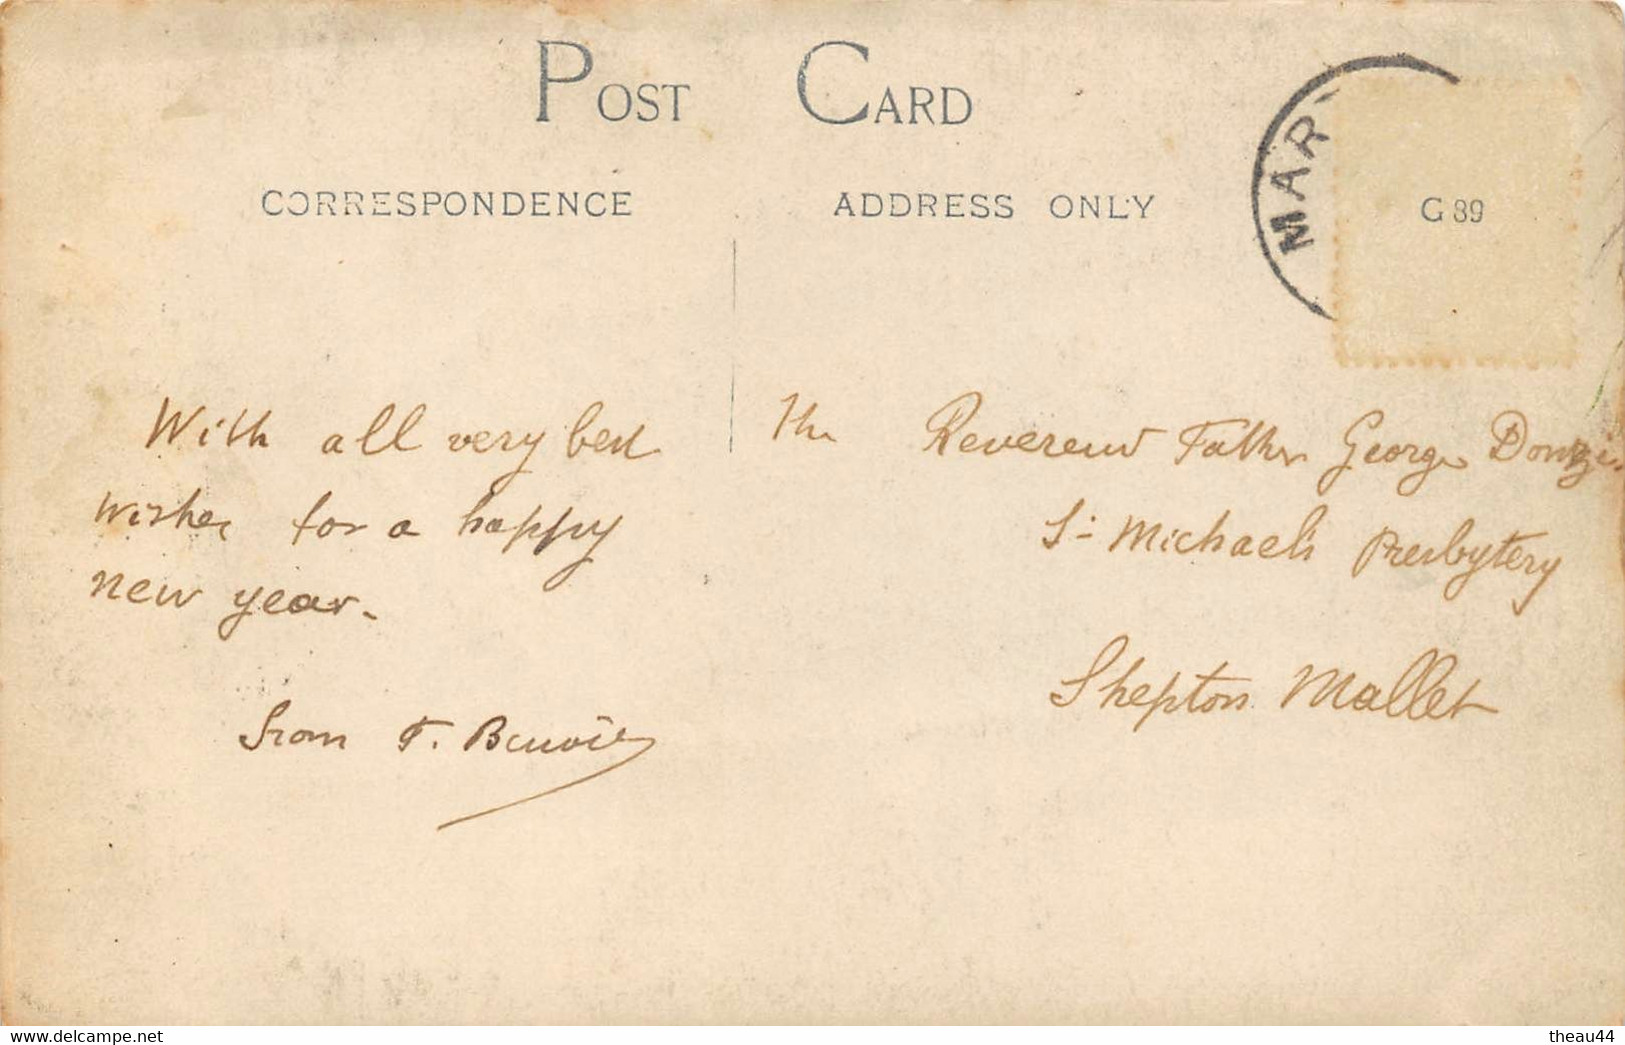 POST CARD
CORRESPONDENCE
ADDRESS ONLY
MAR
G 39
With all very best
wishes for a happy
new year.
from F. Benoit
The Reverend Father George
St Michael's Presbytery
Shepton Mallet
www.delcampe.net
theau44